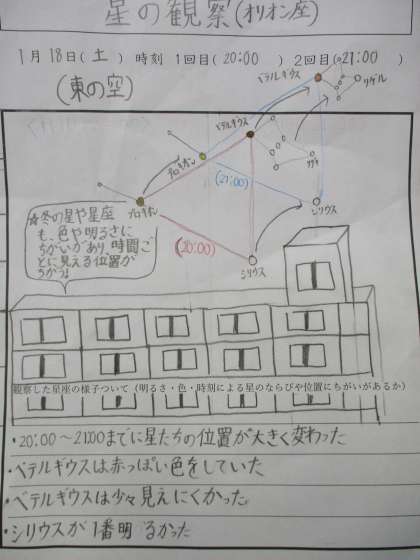 星の観察(オリオン座)
1月18日(土) 時刻 1回目(20:00) 2回目(21:00)
(東の空)
ベテルギウス
リゲル
ベテルギウス
プロキオン
リゲル
(21:00)
プロキオン
シリウス
(20:00)
シリウス
☆冬の星や星座
も、色や明るさに
ちがいがあり、時間ご
とに見える位置が
ちがう!
観察した星座の様子ついて(明るさ・色・時刻による星のならびや位置にちがいがあるか)
・20:00〜21:00までに星たちの位置が大きく変わった
・ベテルギウスは赤っぽい色をしていた
・ベテルギウスは少々見えにくかった。
・シリウスが1番明るかった